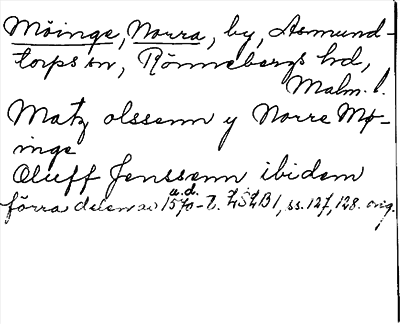 Möinge, Norra, by, Asmund-
torps sn, Rönnebergs hd,
Malm. l.
Matz olssenn y Norre Mø-
inge
Oluff Jenssenn ibidem
förra delen av a.d. 1570-t. LSLB1, ss. 127, 128. orig.